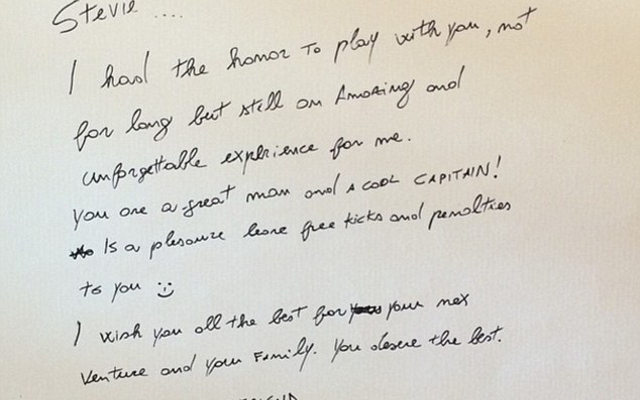 Stevie ....
I had the honor to play with you, not
for long but still an Amazing and
unforgettable experience for me.
you are a great man and A COOL CAPITAIN!
Is a pleasure leave free kicks and penalties
to you :)
I wish you all the best for your nex
Venture and your Family. You deserve the best.